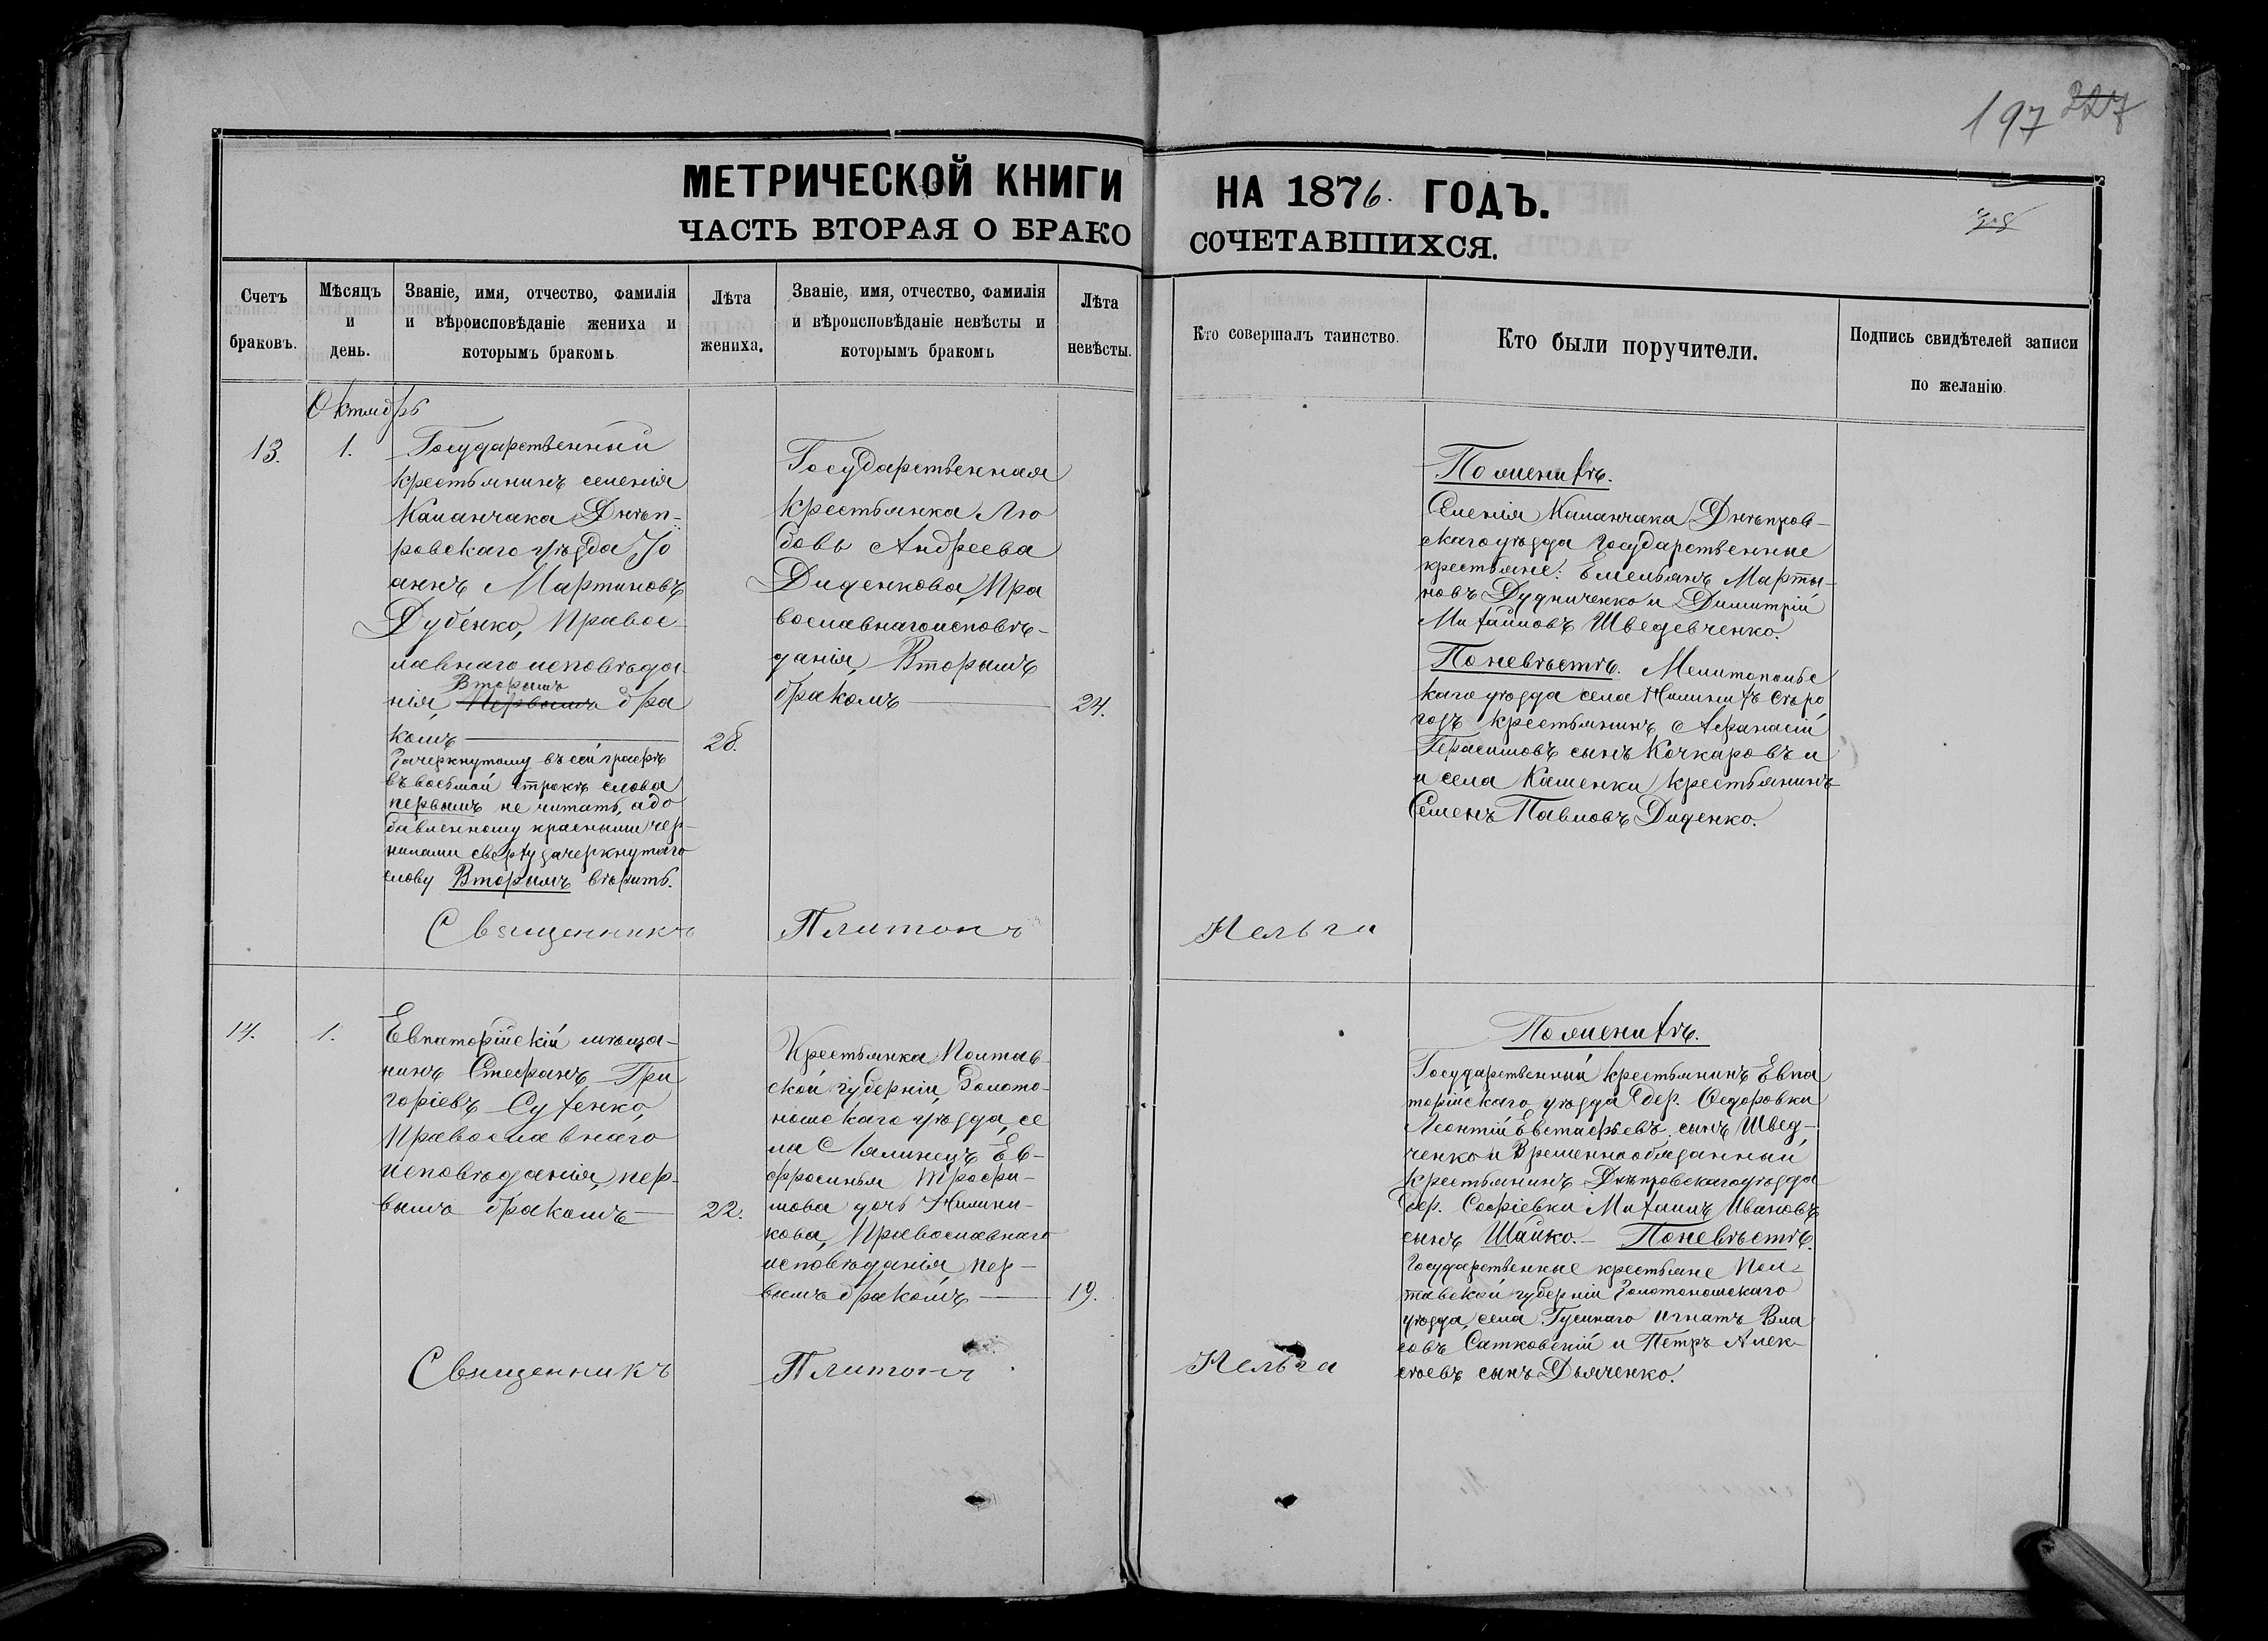 197 227
МЕТРИЧЕСКОЙ КНИГИ НА 1876. ГОДЪ.
ЧАСТЬ ВТОРАЯ О БРАКОСОЧЕТАВШИХСЯ.
Счетъ браковъ.
Мѣсяцъ и день.
Званіе, имя, отчество, фамилія
и вѣроисповѣданіе жениха и
которымъ бракомъ
Лѣта жениха.
Званіе, имя, отчество, фамилія
и вѣроисповѣданіе невѣсты и
которымъ бракомъ
Лѣта невѣсты.
Кто совершалъ таинство.
Кто были поручители.
Подпись свидѣтелей записи
по желанію
Октябрь
13.
1.
Государственный
крестьянинъ селенія
Каланчака Днѣп-
ровскаго уѣзда Іо
аннъ Мартиновъ
Дубенко, Правос-
лавнаго исповѣда
Вторымъ
нія, Первымъ бра
комъ
28.
Зачеркнутому въ сей графѣ
въ восьмой строкѣ слова
первымъ не читать, а до
бавленному красными чер-
нилами сверху зачеркнутаго
слову Вторымъ вѣрить.
Государственная
крестьянка Лю
бовь Андреева
Диденкова, Пра
вославнаго исповѣ-
данія, Вторымъ
бракомъ
24.
По женихѣ.
Селенія Каланчака Днѣпров-
скаго уѣзда Государственные
крестьяне: Емельянъ Марты-
новъ Дудниченко и Димитрій
Михайловъ Шведевченко.
По невѣстѣ. Мелитопольс
каго уѣзда села Нижнихъ Сѣро
гозъ крестьянинъ Афанасій
Герасимовъ сынъ Кочкаровъ и
и села Каменки крестьянинъ
Семенъ Павловъ Диденко.
Священникъ Платонъ Кельга
14.
1.
Евпаторійскій мѣща-
нинъ Стефанъ Гри
горіевъ Сухенко,
Православнаго
исповѣданія, пер-
вымъ бракомъ
22.
Крестьянка Полтав-
ской губерніи, Золото-
ношскаго уѣзда, се
ла Лялинецъ Ев-
фросинья Трофи-
мова дочь
кова, Православнаго
исповѣданія, пер-
вымъ бракомъ
19.
По женихѣ.
Государственный крестьянинъ Евпа
торійскаго уѣзда дер. Федоровки
Леонтій Евстафьевъ сынъ Швед-
ченко и Временнообязанный
крестьянинъ Днѣпровскаго уѣзда
дер. Софіевки Михаилъ Ивановъ
сынъ Шайко. По невѣстѣ.
Государственные крестьяне Пол-
тавской губерніи Золотоношскаго
уѣзда, села Гусинаго Игнатъ Вла
совъ Сатковскій и Петръ Алек-
сѣевъ сынъ Дьяченко.
Священникъ Платонъ Кельга